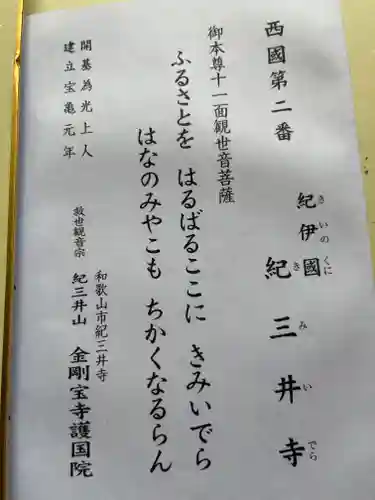 西國第二番
紀伊國 きいのくに
紀三井寺 きみいでら
御本尊十一面観世音菩薩
ふるさとを はるばるここに きみいでら
はなのみやこも ちかくなるらん
開基為光上人
建立宝亀元年
和歌山市紀三井寺
救世観音宗 紀三井山 金剛宝寺護国院